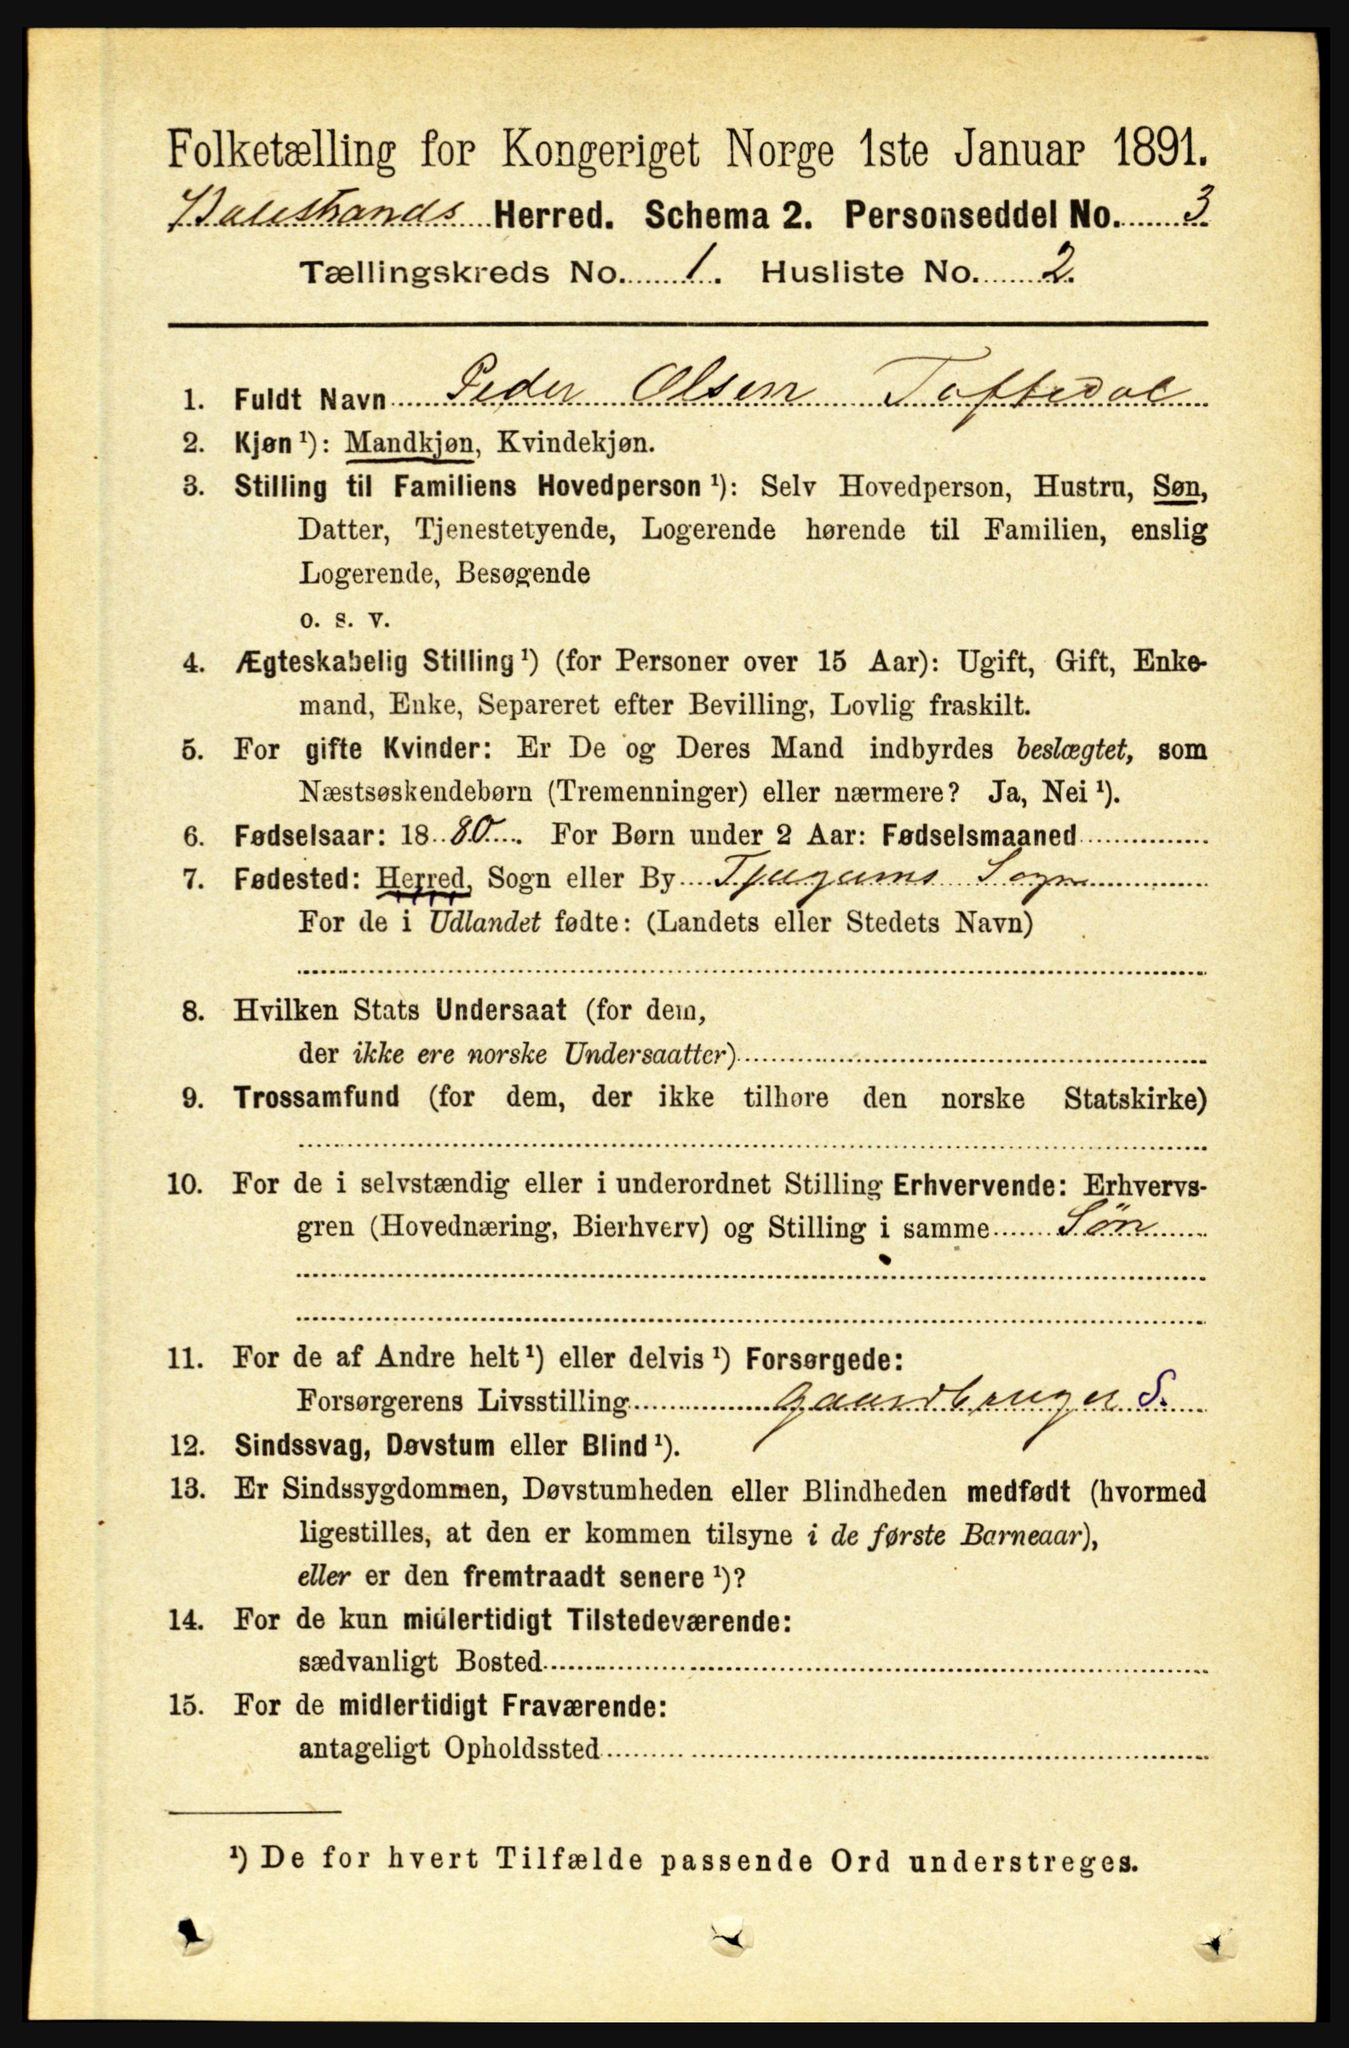 Folketælling for Kongeriget Norge 1ste Januar 1891.
Balestrands Herred. Schema 2. Personseddel No. 3
Tællingskreds No. 1. Husliste No. 2.
1. Fuldt Navn Peder Olsen Toftedal
2. Kjøn ¹): Mandkjøn, Kvindekjøn.
3. Stilling til Familiens Hovedperson ¹): Selv Hovedperson, Hustru, Søn,
Datter, Tjenestetyende, Logerende hørende til Familien, enslig
Logerende, Besøgende
o. s. v.
4. Ægteskabelig Stilling ¹) (for Personer over 15 Aar): Ugift, Gift, Enke-
mand, Enke, Separeret efter Bevilling, Lovlig fraskilt.
5. For gifte Kvinder: Er De og Deres Mand indbyrdes beslægtet, som
Næstsøskendebørn (Tremenninger) eller nærmere? Ja, Nei ¹).
6. Fødselsaar: 1880. For Børn under 2 Aar: Fødselsmaaned
7. Fødested: Herred, Sogn eller By Tjugums Sogn
For de i Udlandet fødte: (Landets eller Stedets Navn)
8. Hvilken Stats Undersaat (for dem,
der ikke ere norske Undersaatter)
9. Trossamfund (for dem, der ikke tilhøre den norske Statskirke)
10. For de i selvstændig eller i underordnet Stilling Erhvervende: Erhvervs-
gren (Hovednæring, Bierhverv) og Stilling i samme Søn
11. For de af Andre helt ¹) eller delvis ¹) Forsørgede:
Forsørgerens Livsstilling Gaardbruger S.
12. Sindssvag, Døvstum eller Blind ¹).
13. Er Sindssygdommen, Døvstumheden eller Blindheden medfødt (hvormed
ligestilles, at den er kommen tilsyne i de første Barneaar),
eller er den fremtraadt senere ¹)?
14. For de kun midlertidigt Tilstedeværende:
sædvanligt Bosted
15. For de midlertidigt Fraværende:
antageligt Opholdssted
¹) De for hvert Tilfælde passende Ord understreges.